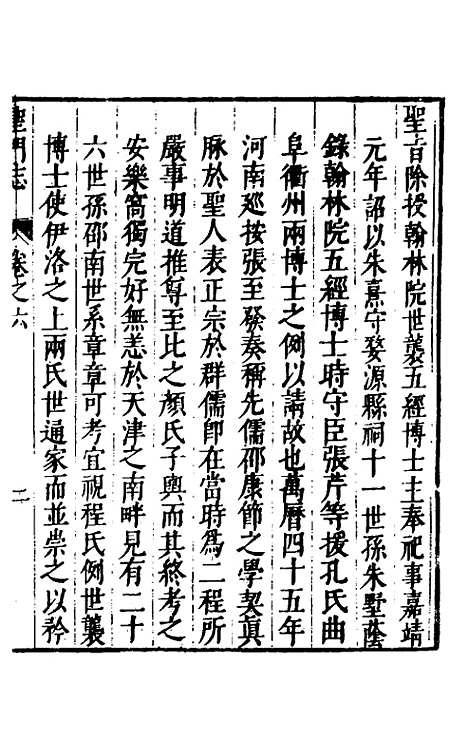 聖旨除授翰林院世襲五經博士主奉祀事嘉靖
元年詔以朱熹守婺源縣祠十一世孫朱墅蔭
錄翰林院五經博士時守臣張芹等援孔氏曲
阜衢州兩博士之例以請故也萬曆四十五年
河南廵按張至發奏稱先儒邵康節之學契眞
脉於聖人表正宗於群儒卽在當時爲二程所
嚴事明道推尊至比之顏氏子輿而其終考之
安樂窩獨完好無恙於天津之南畔見有二十
六世孫邵南世系章章可考宜視程氏例世襲
博士使伊洛之上兩氏世通家而並崇之以矜
聖門志
卷之六
二